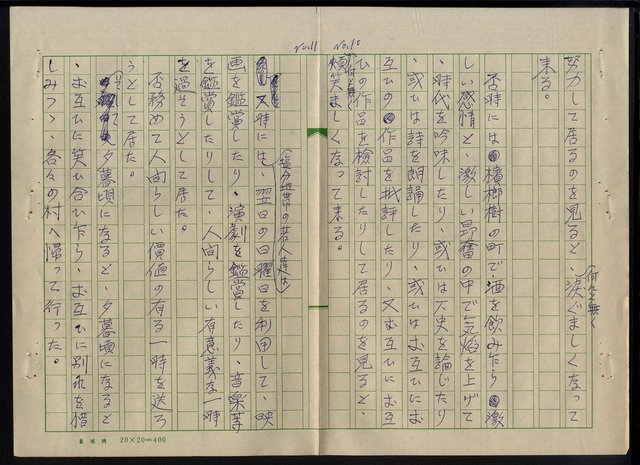 No.10
努力して居るのを見ると、何んと無く涙ぐましくなつて
来る。
否時には檳榔樹の町で、酒を飲み乍ら激
しい感情と、激しい昂奮の中で気焔を上げて
、時代を吟味したり、或ひは歴史を論じたり
、或ひは詩を朗誦したり、或ひはお互ひにお
互ひの作品を批評したり、又お互ひにお互
ひの作品を検討したりして居るのを見ると、
何んと無く頬笑ましくなつて来る。
No.11
又時には、塩分地帯の若人達は翌日の日曜日を利用して、映
画を鑑賞したり、演劇を鑑賞したり、音楽等
を鑑賞したりして、人間らしい有意義な一時
を過そうとして居た。
否務めて人間らしい価値の有る一時を送ろ
うとして居た。
そして夕暮頃になると、夕暮頃になると
、お互ひに笑ひ合ひ乍ら、お互ひに別れを惜
しみつゝ、各々の村へ帰つて行つた。
20×20=400